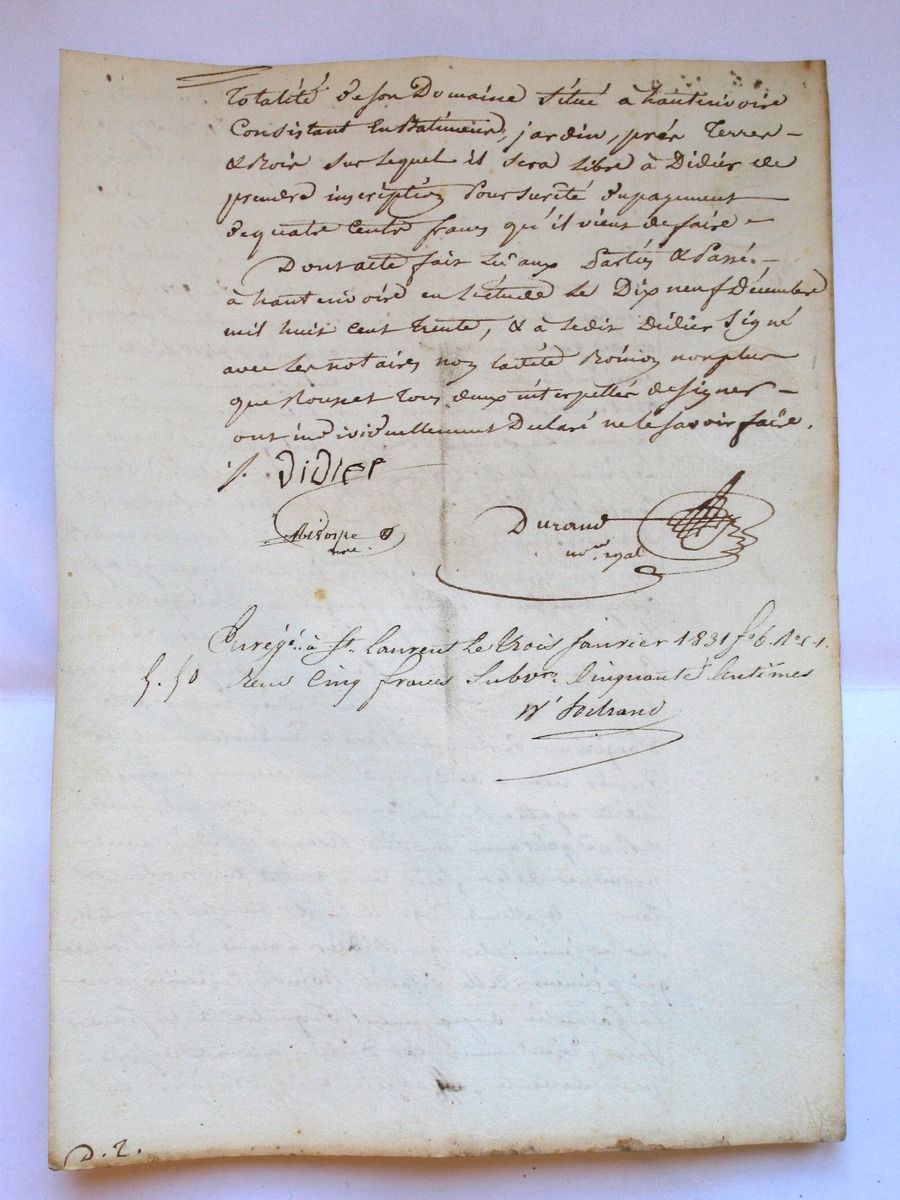 Totalité de son Domaine situé à hauterivoire
Consistant En Batiments, jardin, prés Terres
& Bois sur lequel il sera Libre à Didier de
prendre inscription Pour sureté du payement
de quatre Cents francs qu'il vient de faire
Dont acte fait Lû aux Parties & Passé
à hauterivoire en L'étude Le Dix neuf Décembre
mil huit Cent trente, & à ledit Didier Signé
avec Les notaires non ladite Roinon non plus
que Rousset Tous deux interpellés de signer
ont individuellement Déclaré ne le savoir faire.
J. Didier
Durand
nore. royal
Enregé. à St. Laurent Le trois janvier 1831 fo 6.
5. 50 Reçu Cinq francs Subvon. Cinquante Centimes
D. 2.